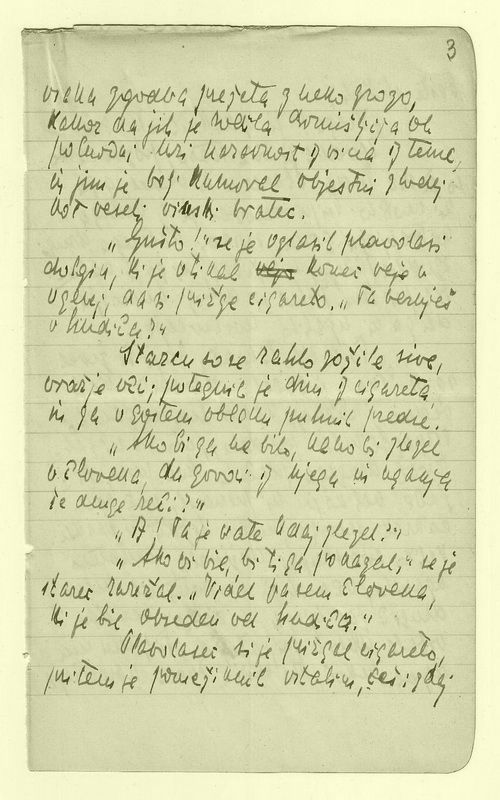 3
viška zgodba prejeta z neko grozo,
kakor da jih je vodila domišljija ob
v naravnost iz vina iz teme,
in jim je bolj kumoval objestni zlodej
kot veseli vinski bratec.
„Gušto!“ se je oglasil plavolasi
dolgin, ki je vtikal konec veje v
ogenj, da si prižge cigareto. „Ta veruješ
v hudiča?“
Starcu so se rahlo zožile sive,
vražje oči; potegnil je dim iz cigareta
in ga v gostem oblaku puhnil predse.
„Ako bi ga ne bilo, kako bi zlezel
v človeka, da govori iz njega in uganja
še druge reči?“
„A! Pa je vate kdaj zlezel?“
„Ako bi bil, bi ti ga pokazal,“ se je
starec zarežal. „Videl pa sem človeka,
ki je bil obseden od hudiča.“
Plavolasec si je prižgal cigareto,
pritem je pomežiknil ostalim, češ: zdaj